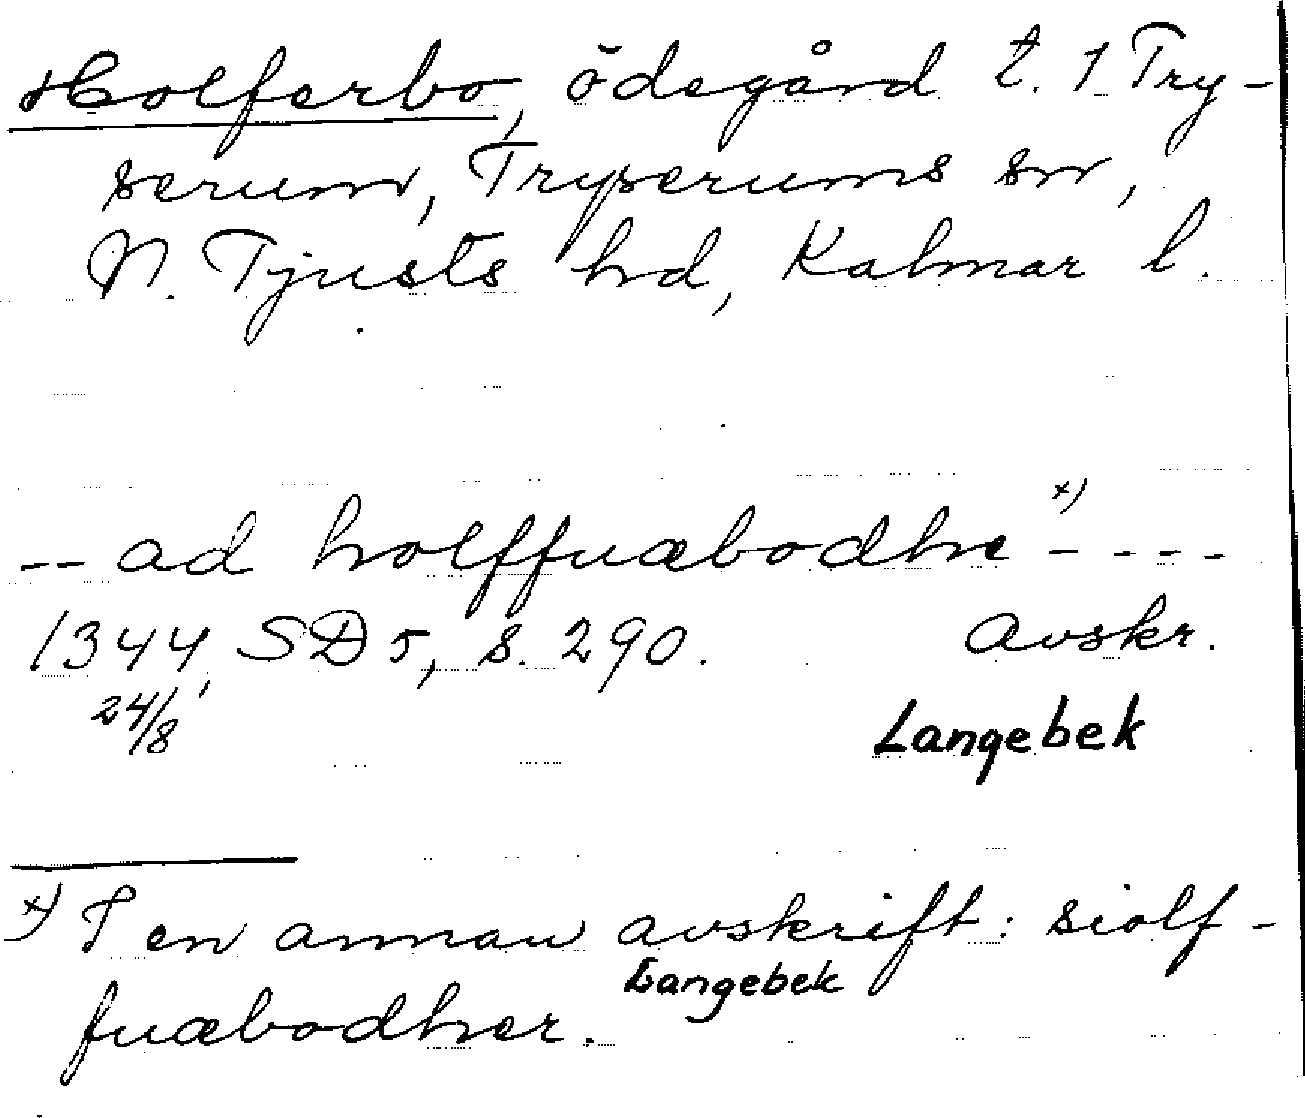 Holferbo, ödegård t. 1 Try-
serum, Tryserums sn,
N. Tjusts hd, Kalmar l.
-- ad holffuæbodhe x) - - - -
1344 24/8, SD 5, s. 290. Avskr.
Langebek
x) I en annan avskrift: siolf-
Langebek
fuæbodher.